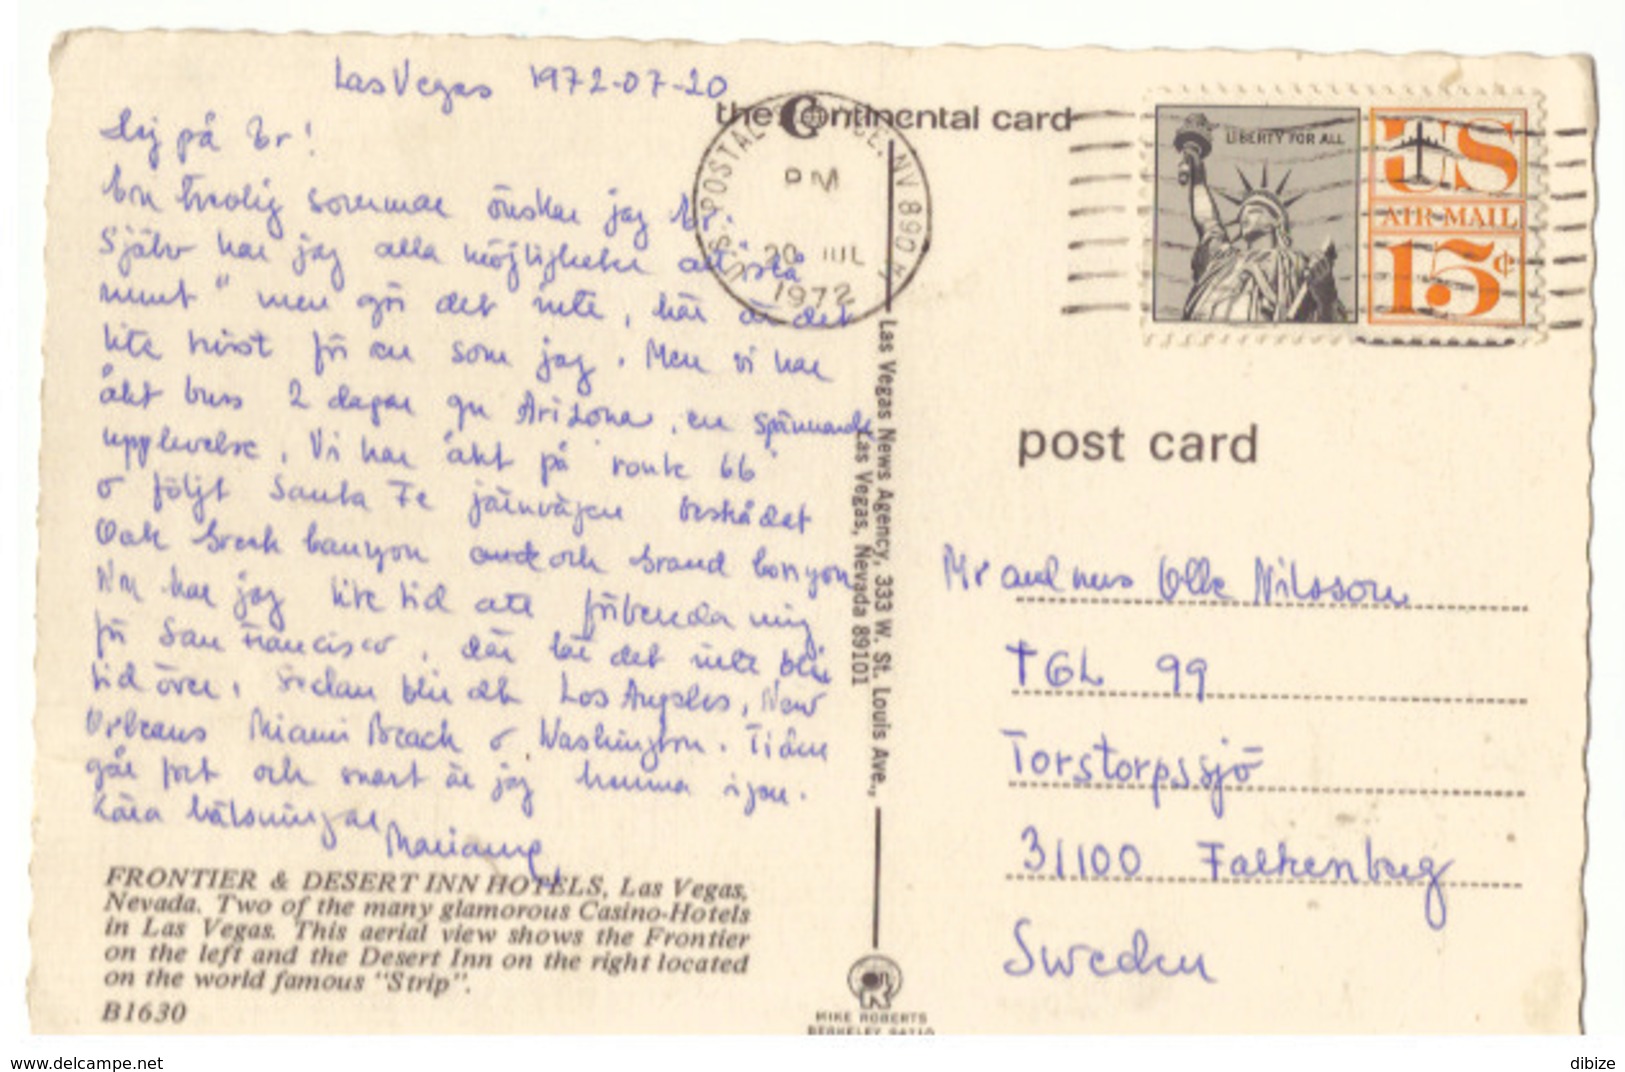 Las Vegas 1972-07-20
Hej på Er!
En trevlig sommar önskar jag Er.
Själv har jag alla möjligheter att "slå
runt" men gör det inte, här är det
lite hett för en som jag. Men vi har
åkt buss 2 dagar gm Arizona, en spännande
upplevelse. Vi har åkt på "route 66"
o följt Santa Fe järnvägen beskådat
Oak Creek Canyon och Grand Canyon
Nu har jag lite tid att förbereda mig
för San Francisco, där lär det inte bli
tid över. Sedan blir det Los Angeles, New
Orleans Miami Beach o Washington. Tiden
går fort och snart är jag hemma igen.
Kära hälsningar Marianne
FRONTIER & DESERT INN HOTELS, Las Vegas,
Nevada. Two of the many glamorous Casino-Hotels
in Las Vegas. This aerial view shows the Frontier
on the left and the Desert Inn on the right located
on the world famous "Strip".
B1630
the Continental card
U.S. POSTAL SERVICE, NV 890
PM
20 JUL
1972
Las Vegas News Agency, 333 W. St. Louis Ave.,
Las Vegas, Nevada 89101
MIKE ROBERTS
BERKELEY 94710
LIBERTY FOR ALL
US
AIR MAIL
15¢
post card
Mr and mrs Olle Nilsson
TGL 99
Torstorpssjö
31100 Falkenberg
Sweden
www.delcampe.net
dibize